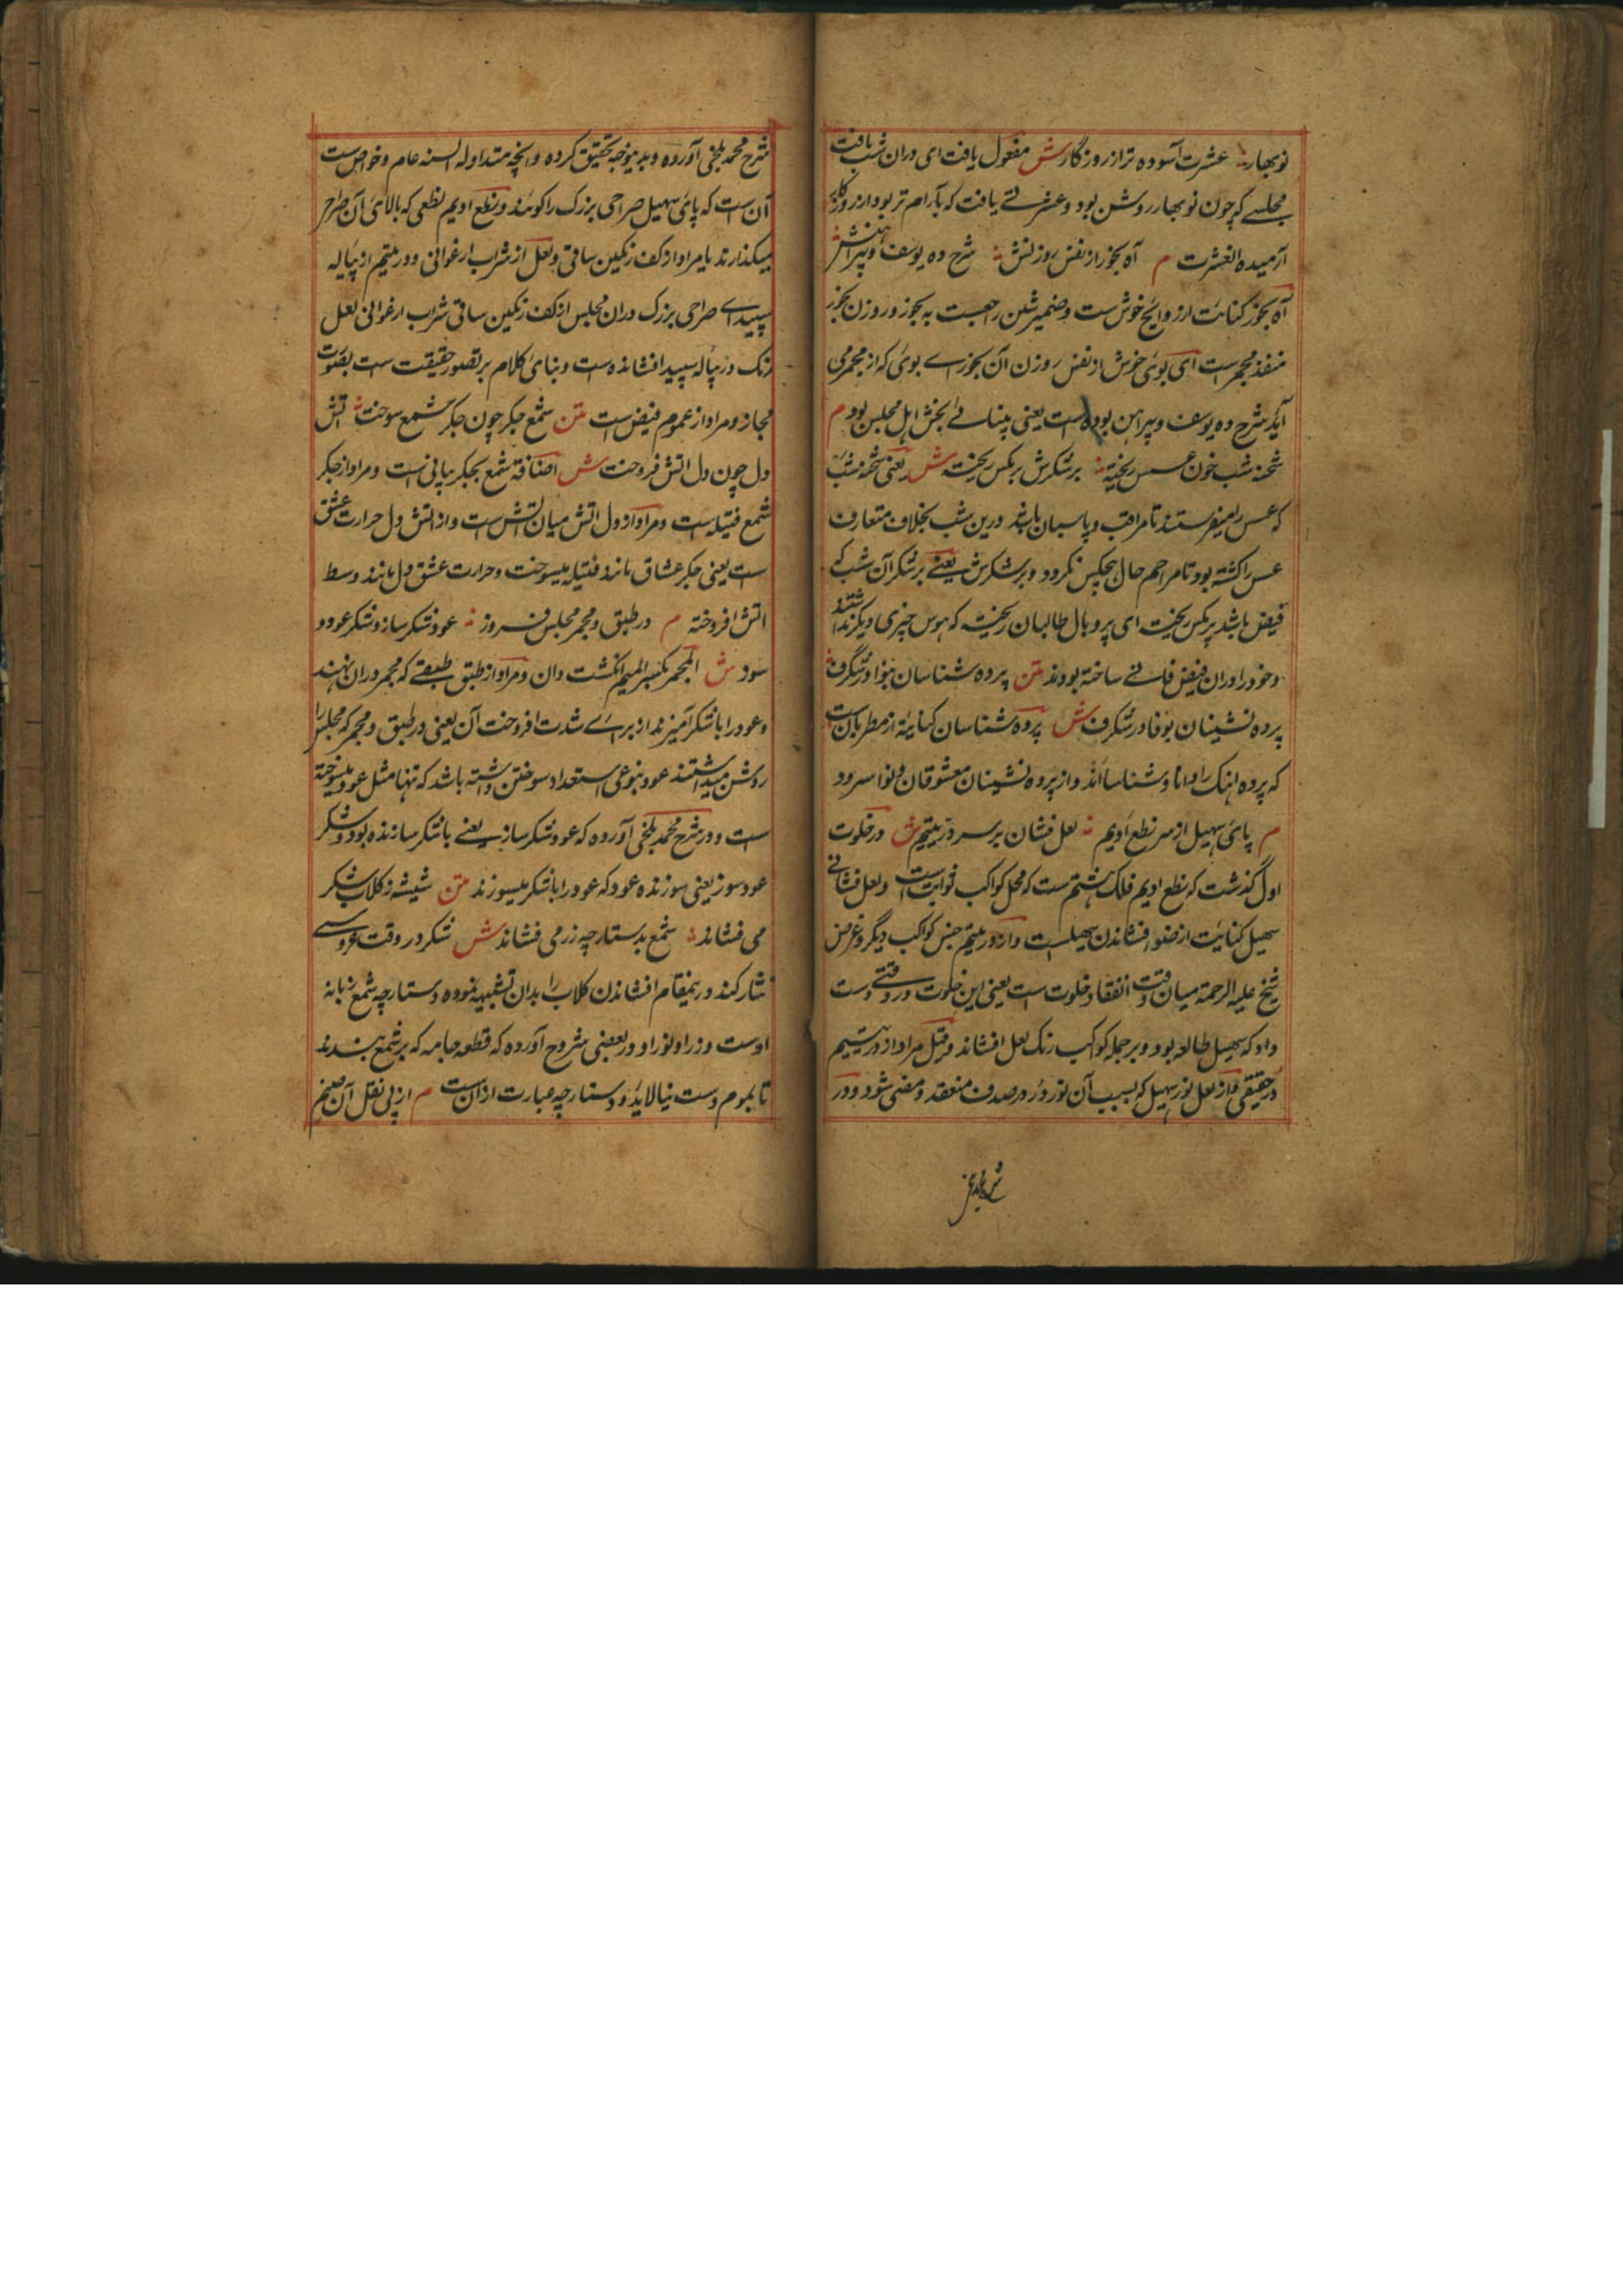 نوبهار عشرت آسوده تر از روزگار ش مفعول یافت ای در ان شب یافت
مجلسے که چون نوبهار روشن بود و عشرتے یافت که بآرام تر بود از روزگار
آرمیده العشرت م آه بخور از نفس روزنش شرح ده یوسف و پیراهنش ش
آه بخور کنایت از روایح خوش ست و ضمیر شین راجعست به بخور و روزن بخور
منفذ مجمر ست ای بوئ خوش از نفس روزن آن بخورے بوئ که از مجمر می
آید شرح ده یوسف و پیراهن بوده است یعنی بینائے بخش اهل مجلس بود م
شحنه شب خون عسس ریخته بر شکرش پر مکس ریخته ش یعنی شحنه شب
که عسس را میفرستند تا مراقب و پاسبان باشد درین شب بخلاف متعارف
عسس را کشته بود تا مزاحم حال هیچکس نکردد و بر شکرش یعنے بر شکر آن شب که
فیض باشد پر مکس ریخت ای پر و بال طالبان ریخته که هوس چیزی دیکر نداشتند
و خود را دران فیض فانے ساخته بودند متن پرده شناسان بنوا در شگرف
پرده نشینان بوفا در شگرف ش پرده شناسان کنایة از مطربان ست
که پرده اهنک را دانا و شناسا اند و از پرده نشینان معشوقان و نوا سرود
م پائ سهیل از سر نطع ادیم لعل فشان بر سر در یتیم ش در خلوت
اول گذشت که نطع ادیم فلک هشتم ست که محل کواکب ثوابت ست و لعل فشانی
سهیل کنایت از ضو افشاندن سهیلست و از در یتیم جنس کواکب دیگر و غرض
شیخ علیه الرحمة میان وقت انفقاد خلوت است یعنی این خلوت در وقتے دست
داد که سهیل طالع بود و بر جمله کواکب رنک لعل افشاند و قیل مراد از در یتیم
در حقیقی و از لعل نور سهیل که بسبب آن نور در صدف منعقد و مضی شود و در
شرح محمد بلخی آورده و بدینوجه تحقیق کرده و انچه متداوله السنه عام و خواص ست
آن است که پائ سهیل صراحی بزرک را کویند و نطع ادیم نطعی که بالائ آن صراحی
میکذارند یا مراد از کف رنکین ساقی و لعل از شراب ارغوانی و در یتیم از پیاله
سپید اے صراحی بزرک دران مجلس از کف رنکین ساقی شراب ارغوانی لعل
رنک در پیاله سپید افشانده است و بنائ کلام بر تصور حقیقت ست بصورت
مجاز و مراد از عموم فیض ست متن شمع جکر چون جکر شمع سوخت آتش
دل چون دل اتش فروخت ش اضافة شمع بجکر بیانی ست و مراد از جکر
شمع فتیله ست و مراد از دل اتش میان آتش ست و از اتش دل حرارت عشق
ست یعنی جکر عشاق مانند فتیله میسوخت و حرارت عشق دل مانند وسط
اتش افروخته م در طبق و مجمر مجلس فروز عود شکر ساز و شکر عود و
سود ش المجمر بکسر المیم انکشت دان و مراد از طبق طبقے که مجمر دران نهند
و عود را با شکر آمیزند از برائے شدت افروخت آن یعنی در طبق و مجمر که مجلس را
روشن میداشتند عود بنوعی استعداد سوختن داشته باشد که تنها مثل عود میسوخته
ست و در شرح محمد بلخی آورده که عود شکر ساز یعنے با شکر سازنده بود و شکر
عود سوز یعنی سوزنده عود که عود را با شکر میسوزند متن شیشه ز کلاب شکر
می فشاند شمع بدستارچه زر می فشاند ش شکر در وقت عروسی
نثار کنند درینمقام افشاندن کلاب را بدان تشبیهه نموده و دستارچه شمع زبانه
اوست و زر او نور او و در بعضی شروح آورده که قطعه جامه که بر شمع بندند
تا بموم دست نیالاید و دستارچه عبارت ازان ست م از پی نقل آن صنم